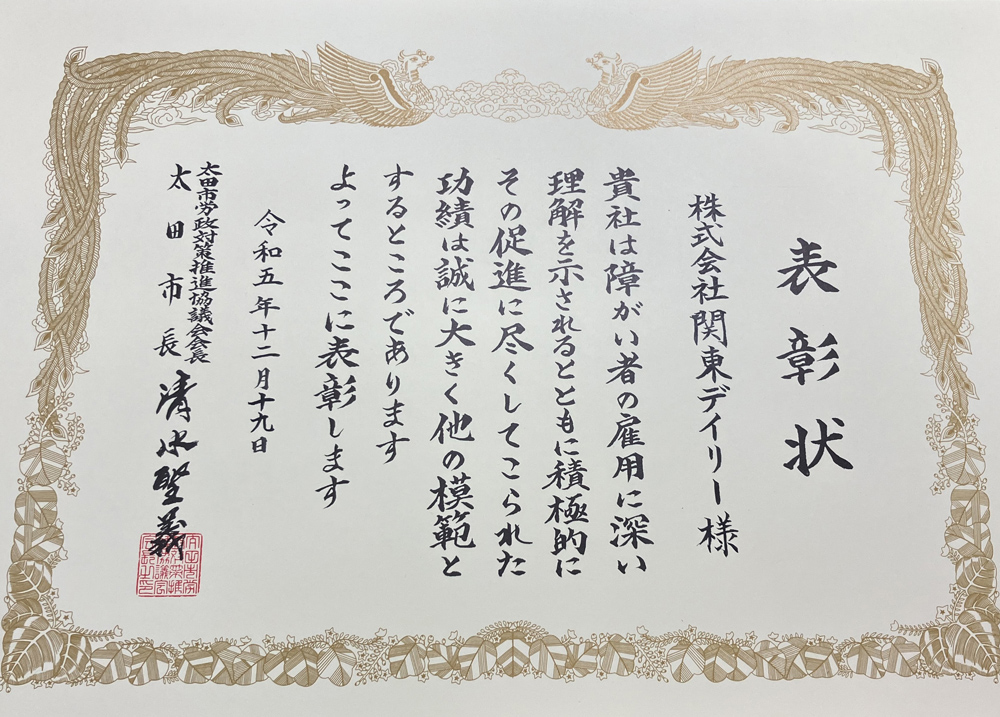 表彰状
株式会社関東デイリー 様
貴社は障がい者の雇用に深い
理解を示されるとともに積極的に
その促進に尽くしてこられた
功績は誠に大きく他の模範と
するところであります
よってここに表彰します
令和五年十二月十九日
太田市労政対策推進協議会会長
太田市長 清水聖義